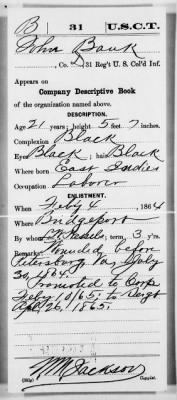 B | 31 | U.S.C.T.
John Bank
, Co. D, 31 Reg't U. S. Col'd Inf.
Appears on
Company Descriptive Book
of the organization named above.
DESCRIPTION.
Age 21 years; height 5 feet 7 inches.
Complexion Black
Eyes Black; hair Black
Where born East Indies
Occupation Laborer
ENLISTMENT.
When Feby 4, 1864
Where Bridgeport
By whom; term 3 y'rs.
Remarks: Wounded before
Petersburg Va July
30, 1864.
Promoted to Corp.
Feby 10/65; to Sergt
Apl 26, 1865.
WM Jackson
Copyist.